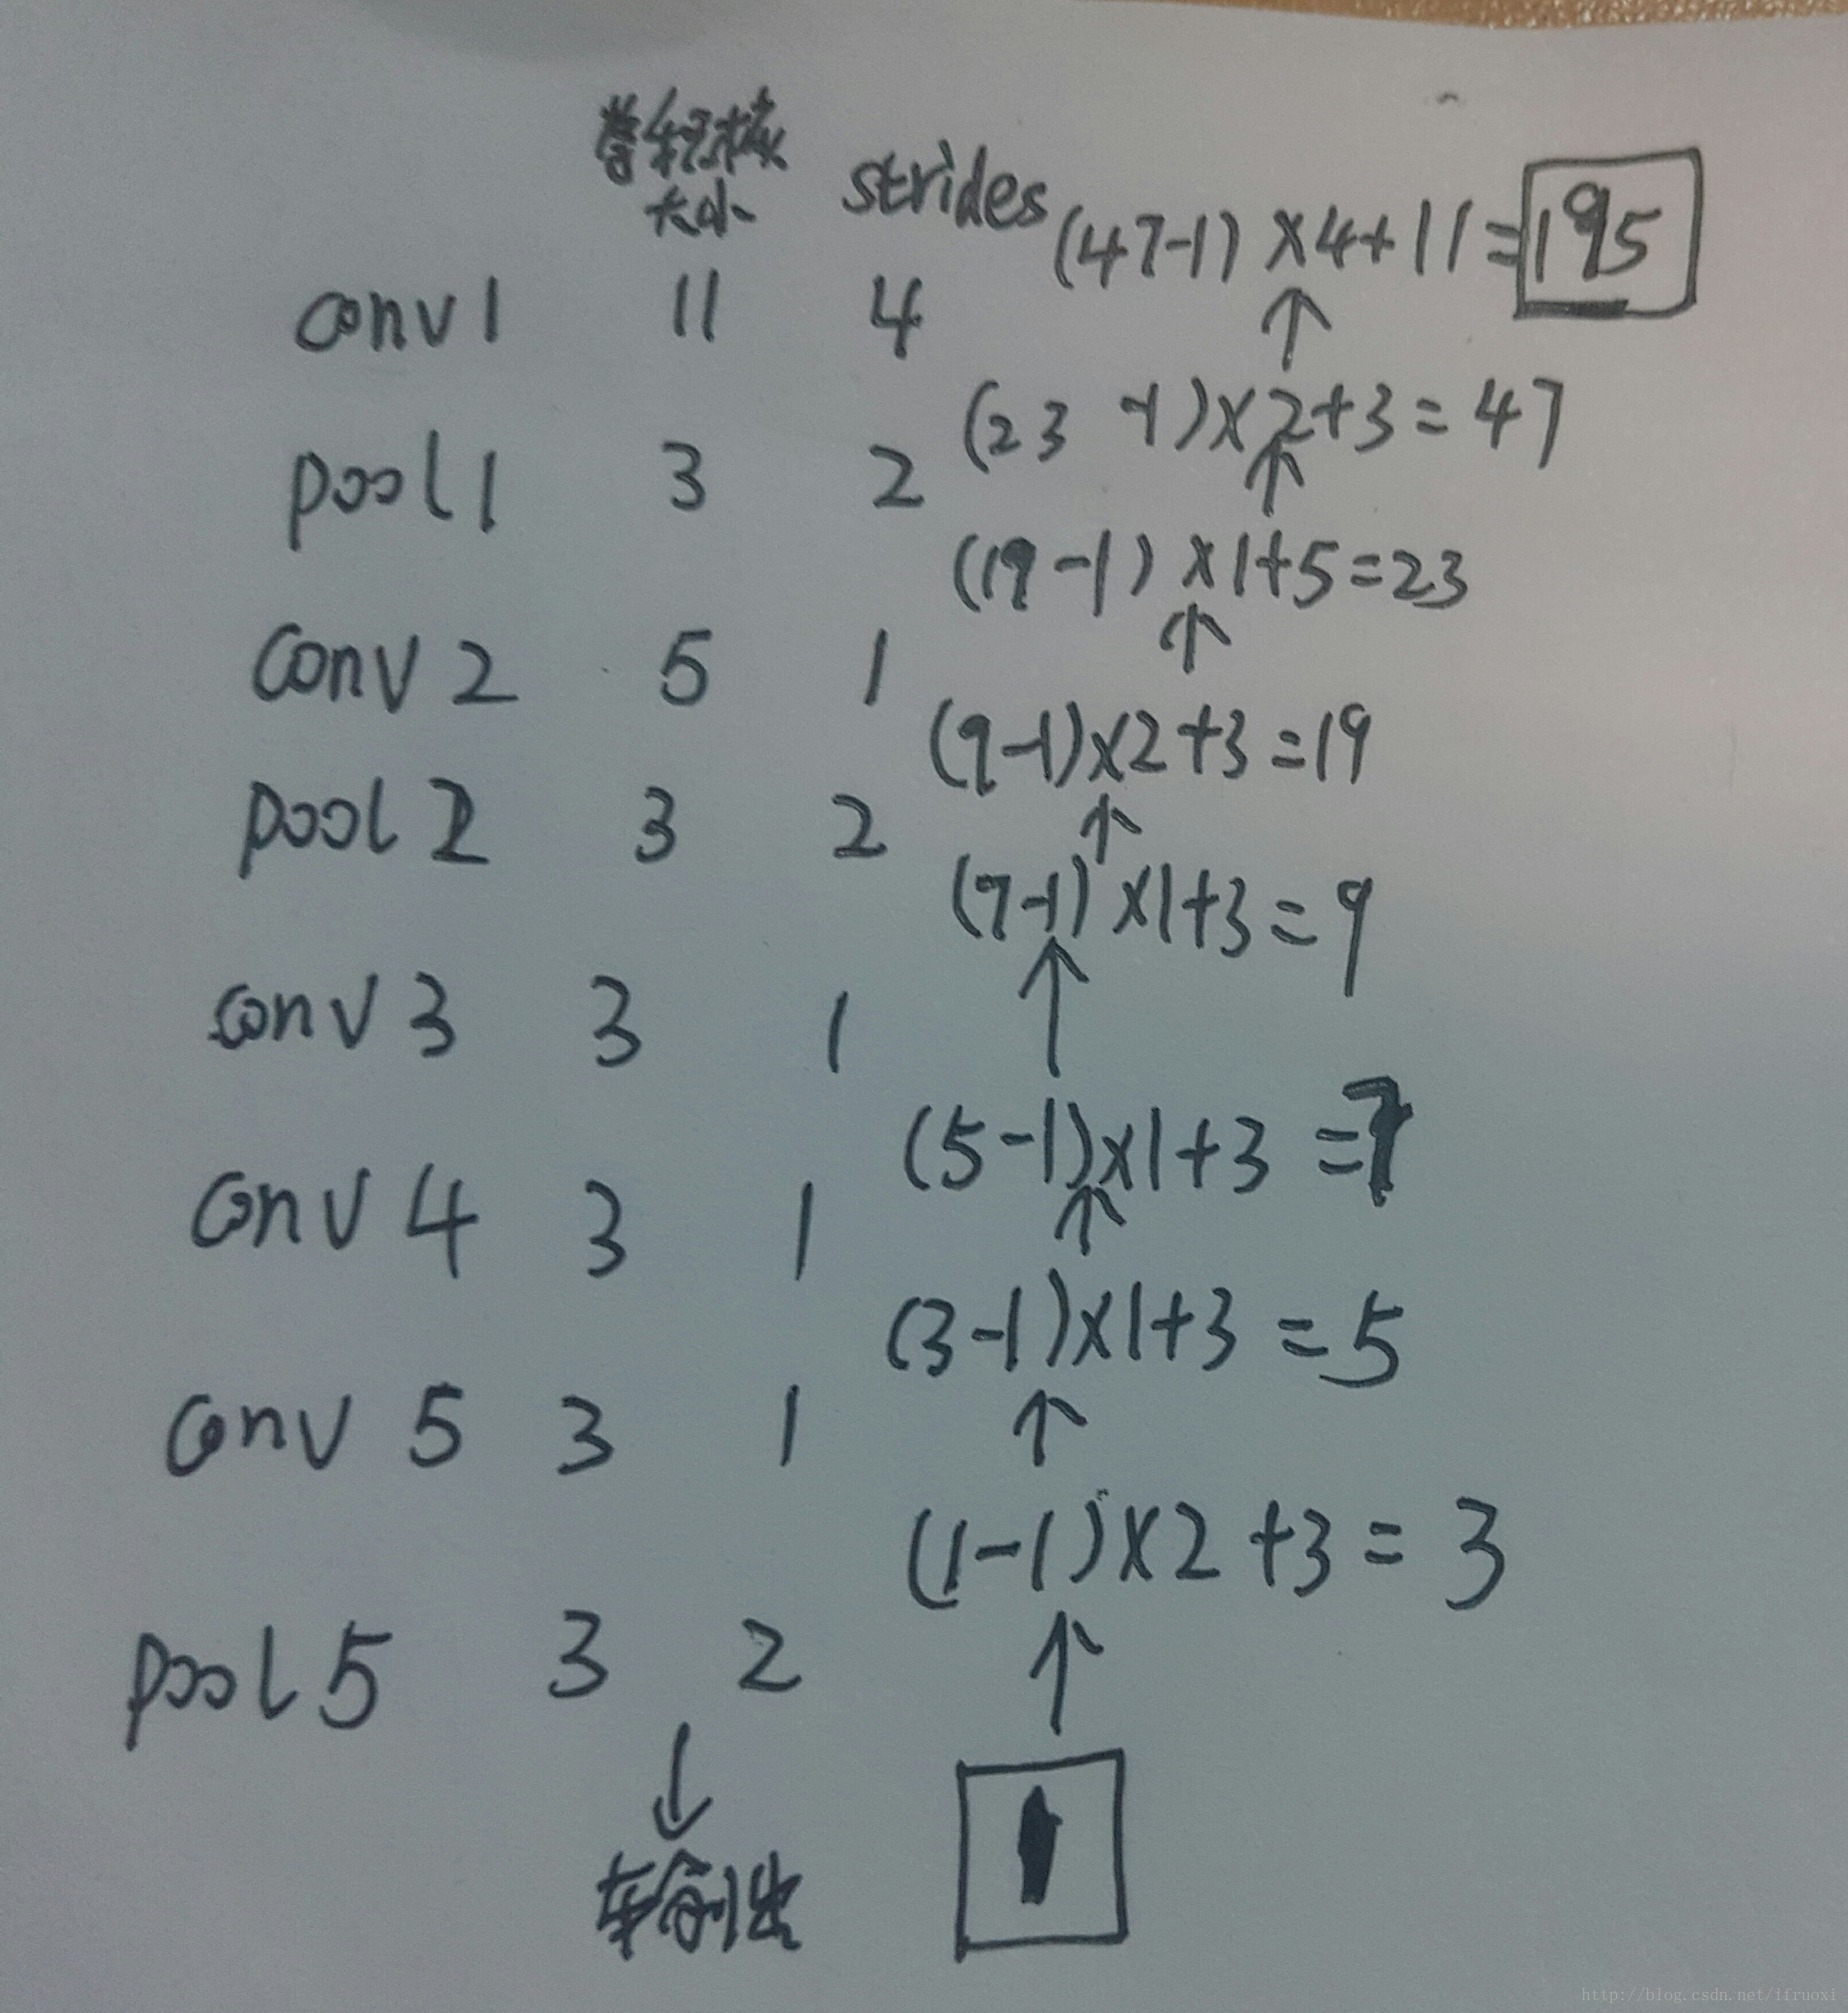 卷积核
大小 strides (47-1) ×4+11=195
conv1 11 4
↑
(23-1)×2+3=47
pool1 3 2
↑
(19-1)×1+5=23
conv2 5 1
↑
(9-1)×2+3=19
pool2 3 2
↑
(7-1)×1+3=9
conv3 3 1
↑
(5-1)×1+3=7
conv4 3 1
↑
(3-1)×1+3=5
conv5 3 1
↑
(1-1)×2+3=3
pool5 3 2
↓ ↑
输出 1
http://blog.csdn.net/ifruoxi